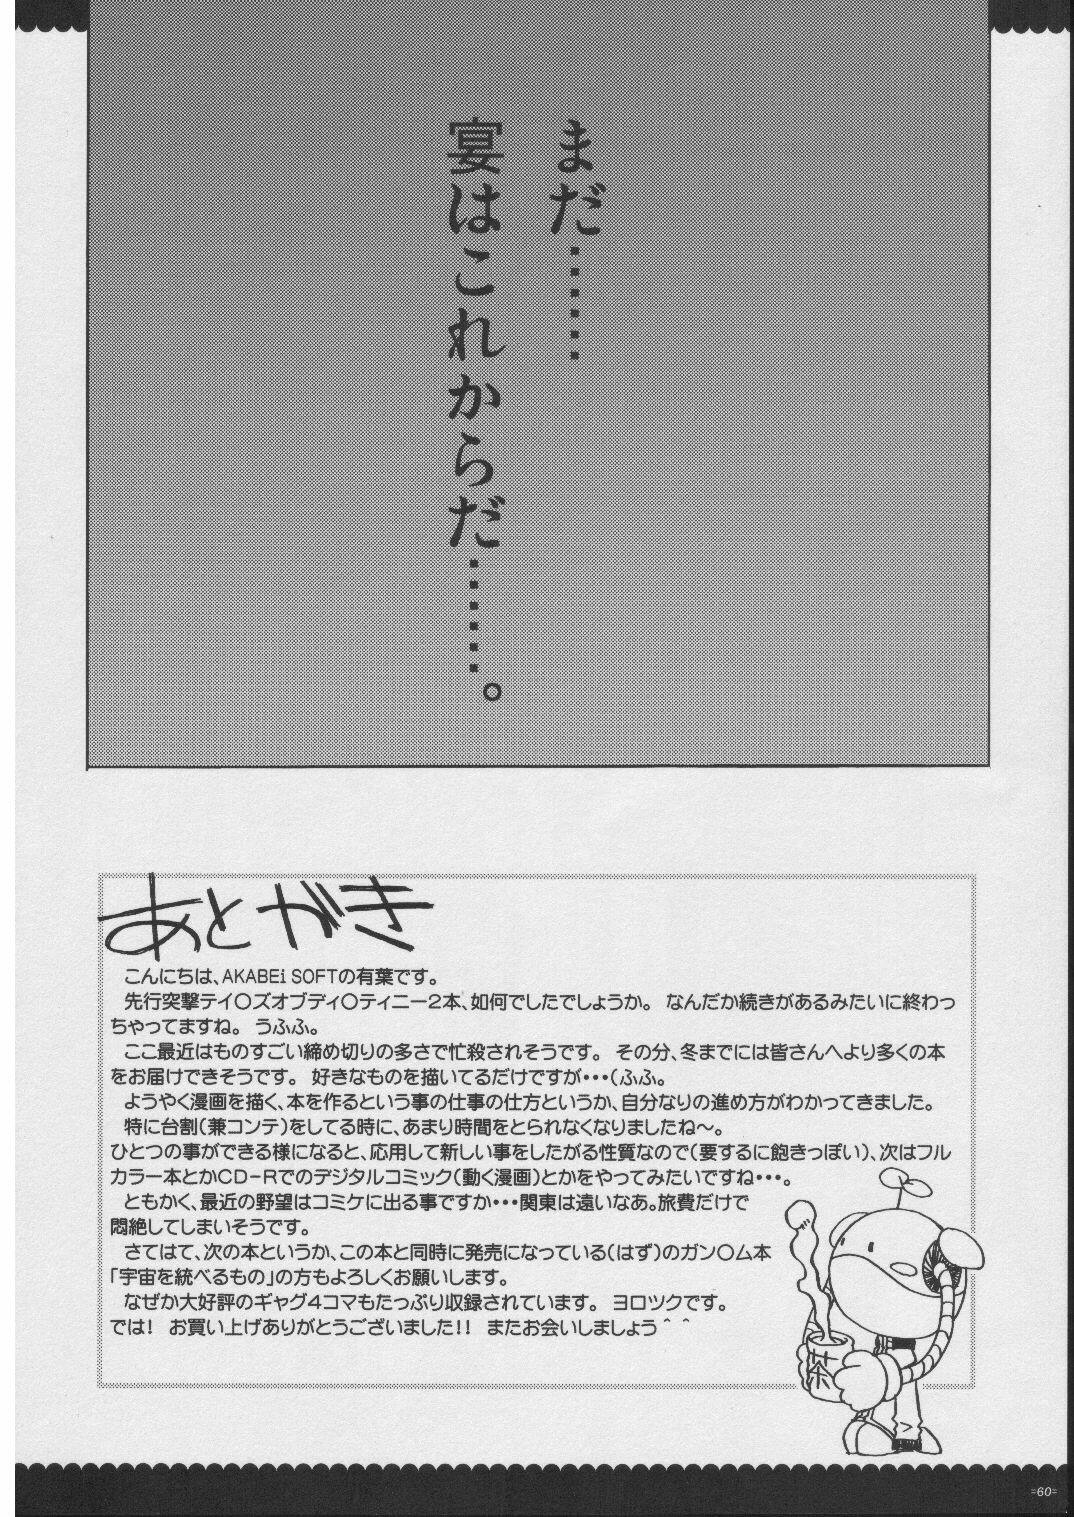 まだ……
宴はこれからだ……。
あとがき
こんにちは、AKABEi SOFTの有葉です。
先行突撃テイ○ズオブディ○ティニー2本、如何でしたでしょうか。 なんだか続きがあるみたいに終わっ
ちゃってますね。 うふふ。
ここ最近はものすごい締め切りの多さで忙殺されそうです。 その分、冬までには皆さんへより多くの本
をお届けできそうです。 好きなものを描いてるだけですが・・・(ふふ。
ようやく漫画を描く、本を作るという事の仕事の仕方というか、自分なりの進め方がわかってきました。
特に台割(兼コンテ)をしてる時に、あまり時間をとられなくなりましたね～。
ひとつの事ができる様になると、応用して新しい事をしたがる性質なので(要するに飽きっぽい)、次はフル
カラー本とかCD-Rでのデジタルコミック(動く漫画)とかをやってみたいですね・・・。
ともかく、最近の野望はコミケに出る事ですか・・・関東は遠いなあ。旅費だけで
悶絶してしまいそうです。
さてはて、次の本というか、この本と同時に発売になっている(はず)のガン○ム本
「宇宙を統べるもの」の方もよろしくお願いします。
なぜか大好評のギャグ4コマもたっぷり収録されています。 ヨロツクです。
では! お買い上げありがとうございました!! またお会いしましょう＾＾
茶
=60=